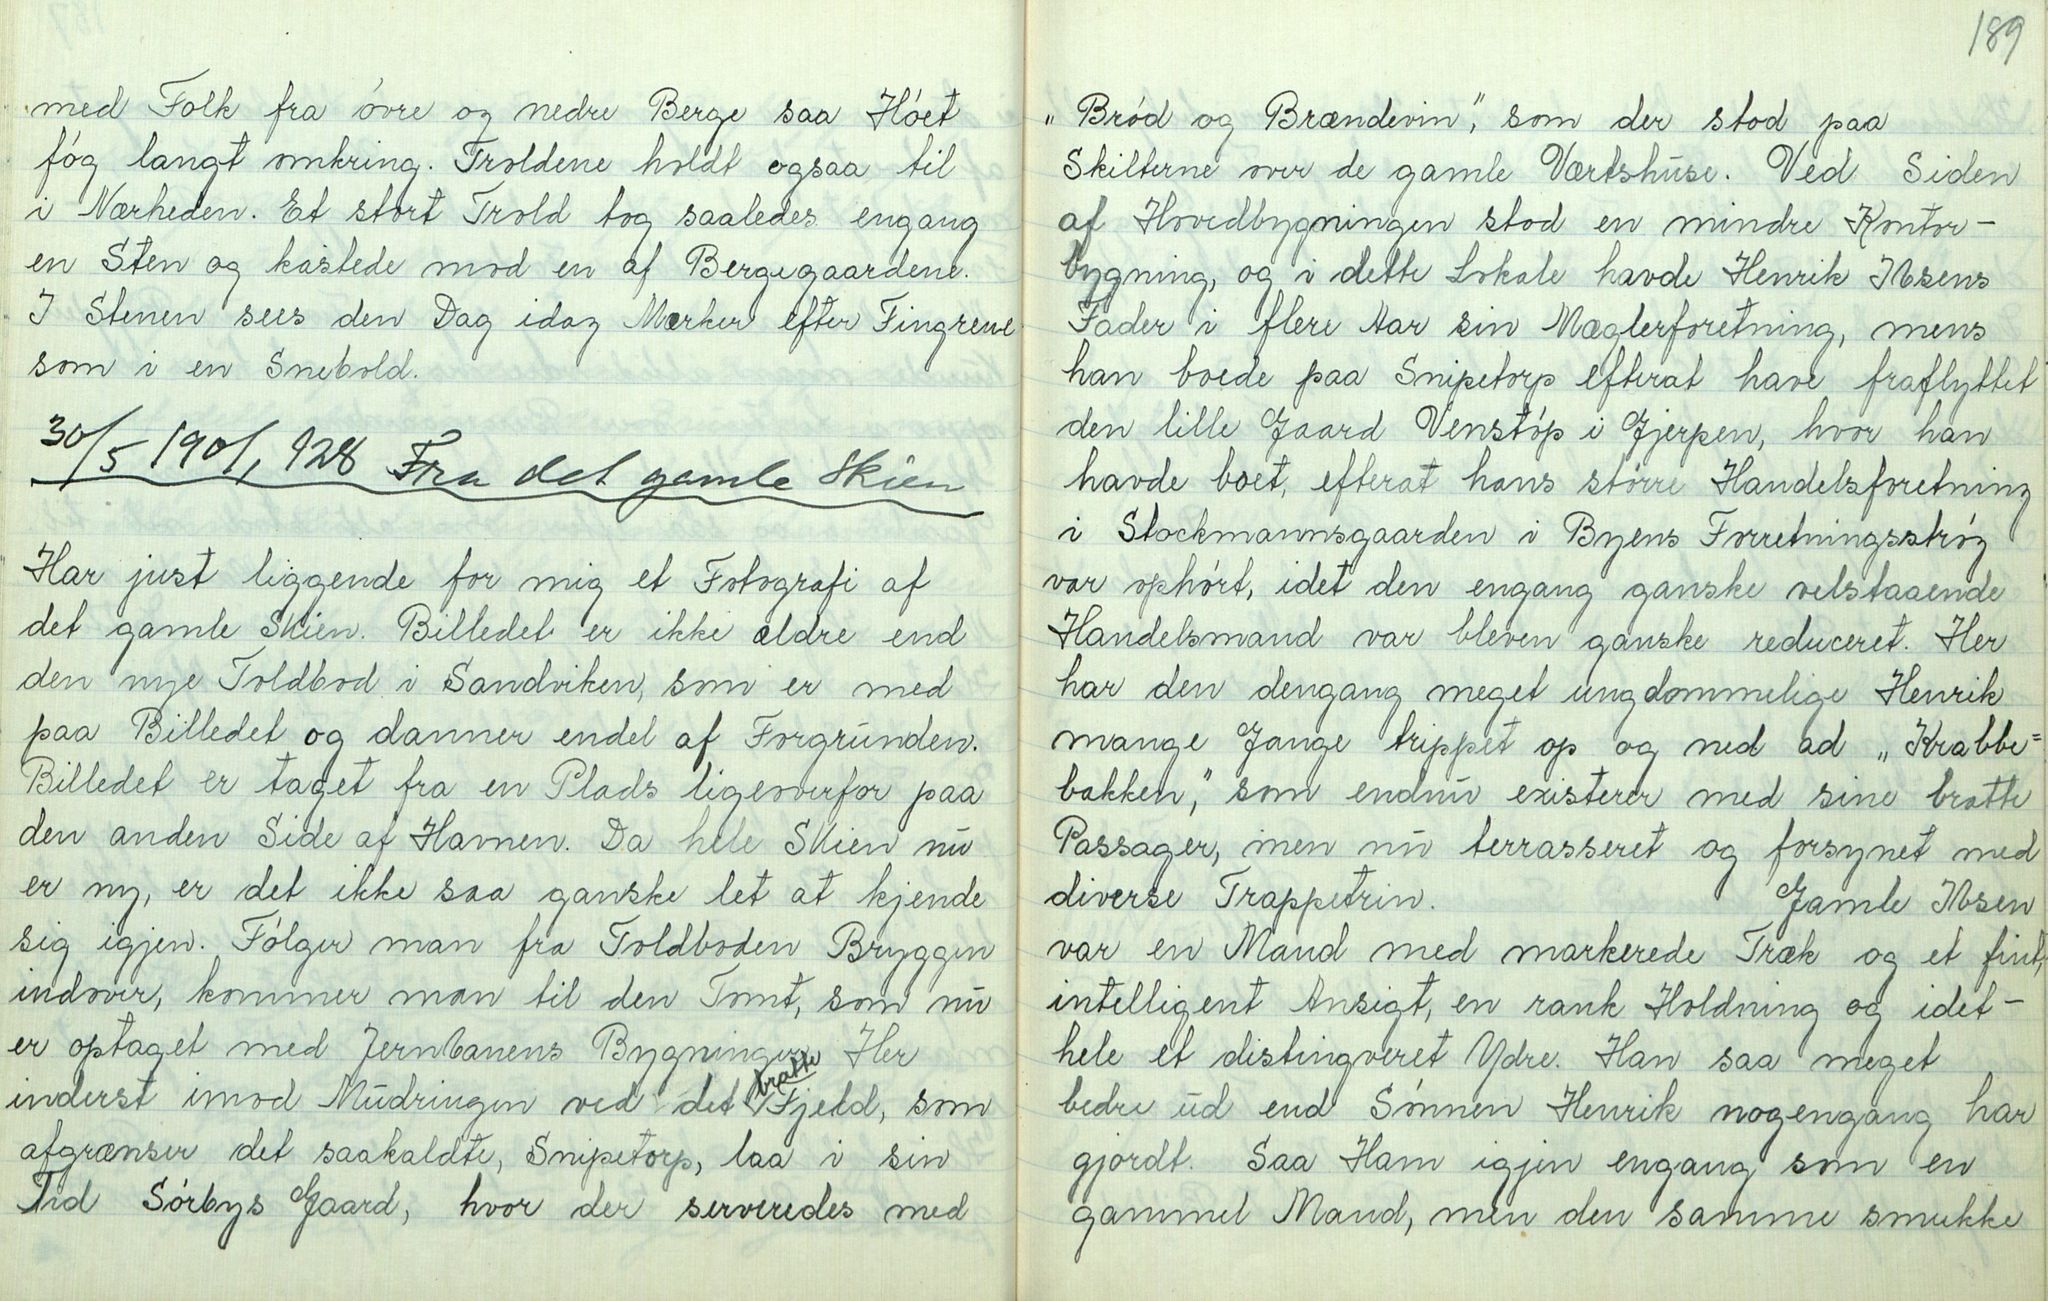 med Folk fra óvre og nedre Berge saa Hóet
fóg langt omkring. Troldene holdt ogsaa til
i Nærheden. Et stort Trold tog saaledes engang
en Sten og kastede mod en af Bergegaardene.
I Stenen sees den Dag idag Mærker efter Fingrene
som i en Snebold.
30/5 1901, 928 Fra det gamle Skien
Har just liggende for mig et Fotografi af
det gamle Skien. Billedet er ikke ældre end
den nye Toldbod i Sandviken, som er med
paa Billedet og danner endel af Forgrunden.
Billedet er taget fra en Plads ligeoverfor paa
den anden Side af Havnen. Da hele Skien nu
er ny, er det ikke saa ganske let at kjende
sig igjen. Fólger man fra Toldboden Bryggen
indover, kommer man til den Tomt, som nu
er optaget med Jernbanens Bygninger. Her
inderst imod Mudringen ved det bratte Fjeld, som
afgrænser det saakaldte, Snipetorp, laa i sin
Tid Sórbys Gaard, hvor der serveredes med
189
"Bród og Brændevin", som der stod paa
Skilterne over de gamle Værtshuse. Ved Siden
af Hovedbygningen stod en mindre Kontor-
bygning, og i dette Lokale havde Henrik Ibsens
Fader i flere Aar sin Mæglerforetning, mens
han boede paa Snipetorp efterat have fraflyttet
den lille Gaard Venstóp i Gjerpen, hvor han
havde boet, efterat hans stórre Handelsforetning
i Stockmannsgaarden i Byens Forretningsstróg
var ophórt, idet den engang ganske velstaaende
Handelsmand var bleven ganske reduceret. Her
har den dengang meget ungdommelige Henrik
mange Gange trippet op og ned ad "Krabbe=
bakken", som endnu existerer med sine bratte
Passager, men nu terrasseret og forsynet med
diverse Trappetrin. Gamle Ibsen
var en Mand med markerede Træk og et fint,
intelligent Ansigt, en rank Holdning og idet-
hele et distingveret Ydre. Han saa meget
bedre ud end Sónnen Henrik nogengang har
gjordt. Saa Ham igjen engang som en
gammel Mand, men den samme smukke